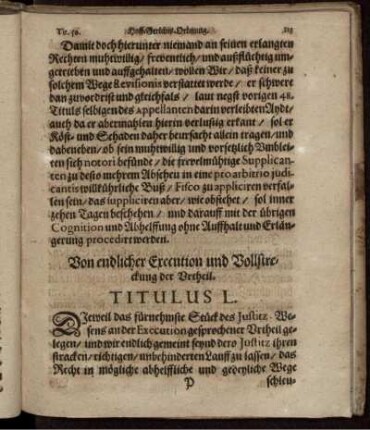 Tit. 50. Hoff-Gerichts-Ordnung. 113
Damit doch hierunter niemand an seinen erlangten
Rechten muhtwillig / freventlich / und außflüchtig um-
getrieben und auffgehalten / wollen Wir / daß keiner zu
solchem Wege Revisionis verstattet werde / er schwere
dan zuvordrist und gleichfals / laut negst vorigen 48.
Tituls selbigen des appellanten darin verleibten Aydt /
auch da er abermahlen hierin verlustig erkant / sol er
Köst- und Schaden daher heurfacht allein tragen / und
dabeneben / ob sein muhtwillig und vorsetzlich Umblei-
ten sich notori befünde / die frevelmühtige Supplican-
ten zu desto mehrem Abscheu in eine pro arbitrio judi-
cantis willkührliche Buß / Fisco zu appliciren verfal-
len sein / das suppliciren aber / wie obstehet / sol inner
zehen Tagen beschehen / und darauff mit der übrigen
Cognition und Abhelffung ohne Auffhalt und Erlän-
gerung procedirt werden.
Von endlicher Execution und Vollstre-
ckung der Urtheil.
TITULUS L.
DJeweil das fürnehmste Stück des Justitz-We-
sens an der Execution gesprochener Urtheil ge-
legen / und wir endlich gemeint seynd dero Justitz ihren
stracken / richtigen / unbehinderten Lauff zu lassen / das
Recht in mögliche abhelffliche und gedeyliche Wege
P schleu-